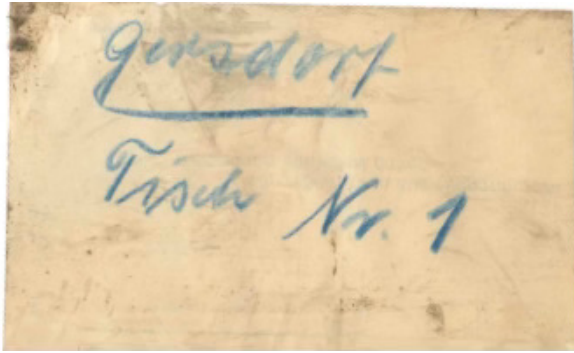 Gersdorf
Tisch Nr. 1